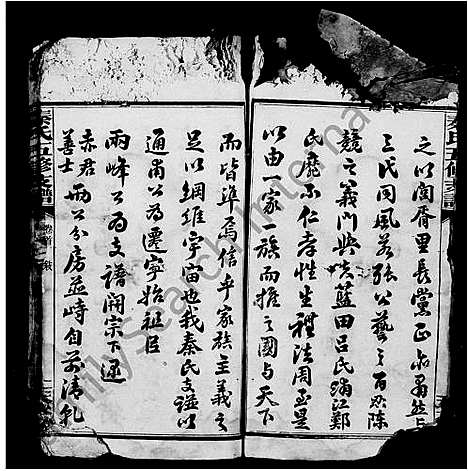 之以闾胥里長黨正亦肅然与
三代同風若張公藝之百忍陳
競之義門與夫藍田呂氏浦江鄭
氏靡不仁孝性生禮法周至是
以由一家一族而推之國与天下
而皆準焉信乎家族主義之
足以綱維宇宙也我秦氏支譜以
通甫公為遷寧始祖臣
兩峰公為支譜開宗下逮
赤君
善士
兩公分房並峙自前清乾
秦氏五修支譜
卷首
FamilySearch International